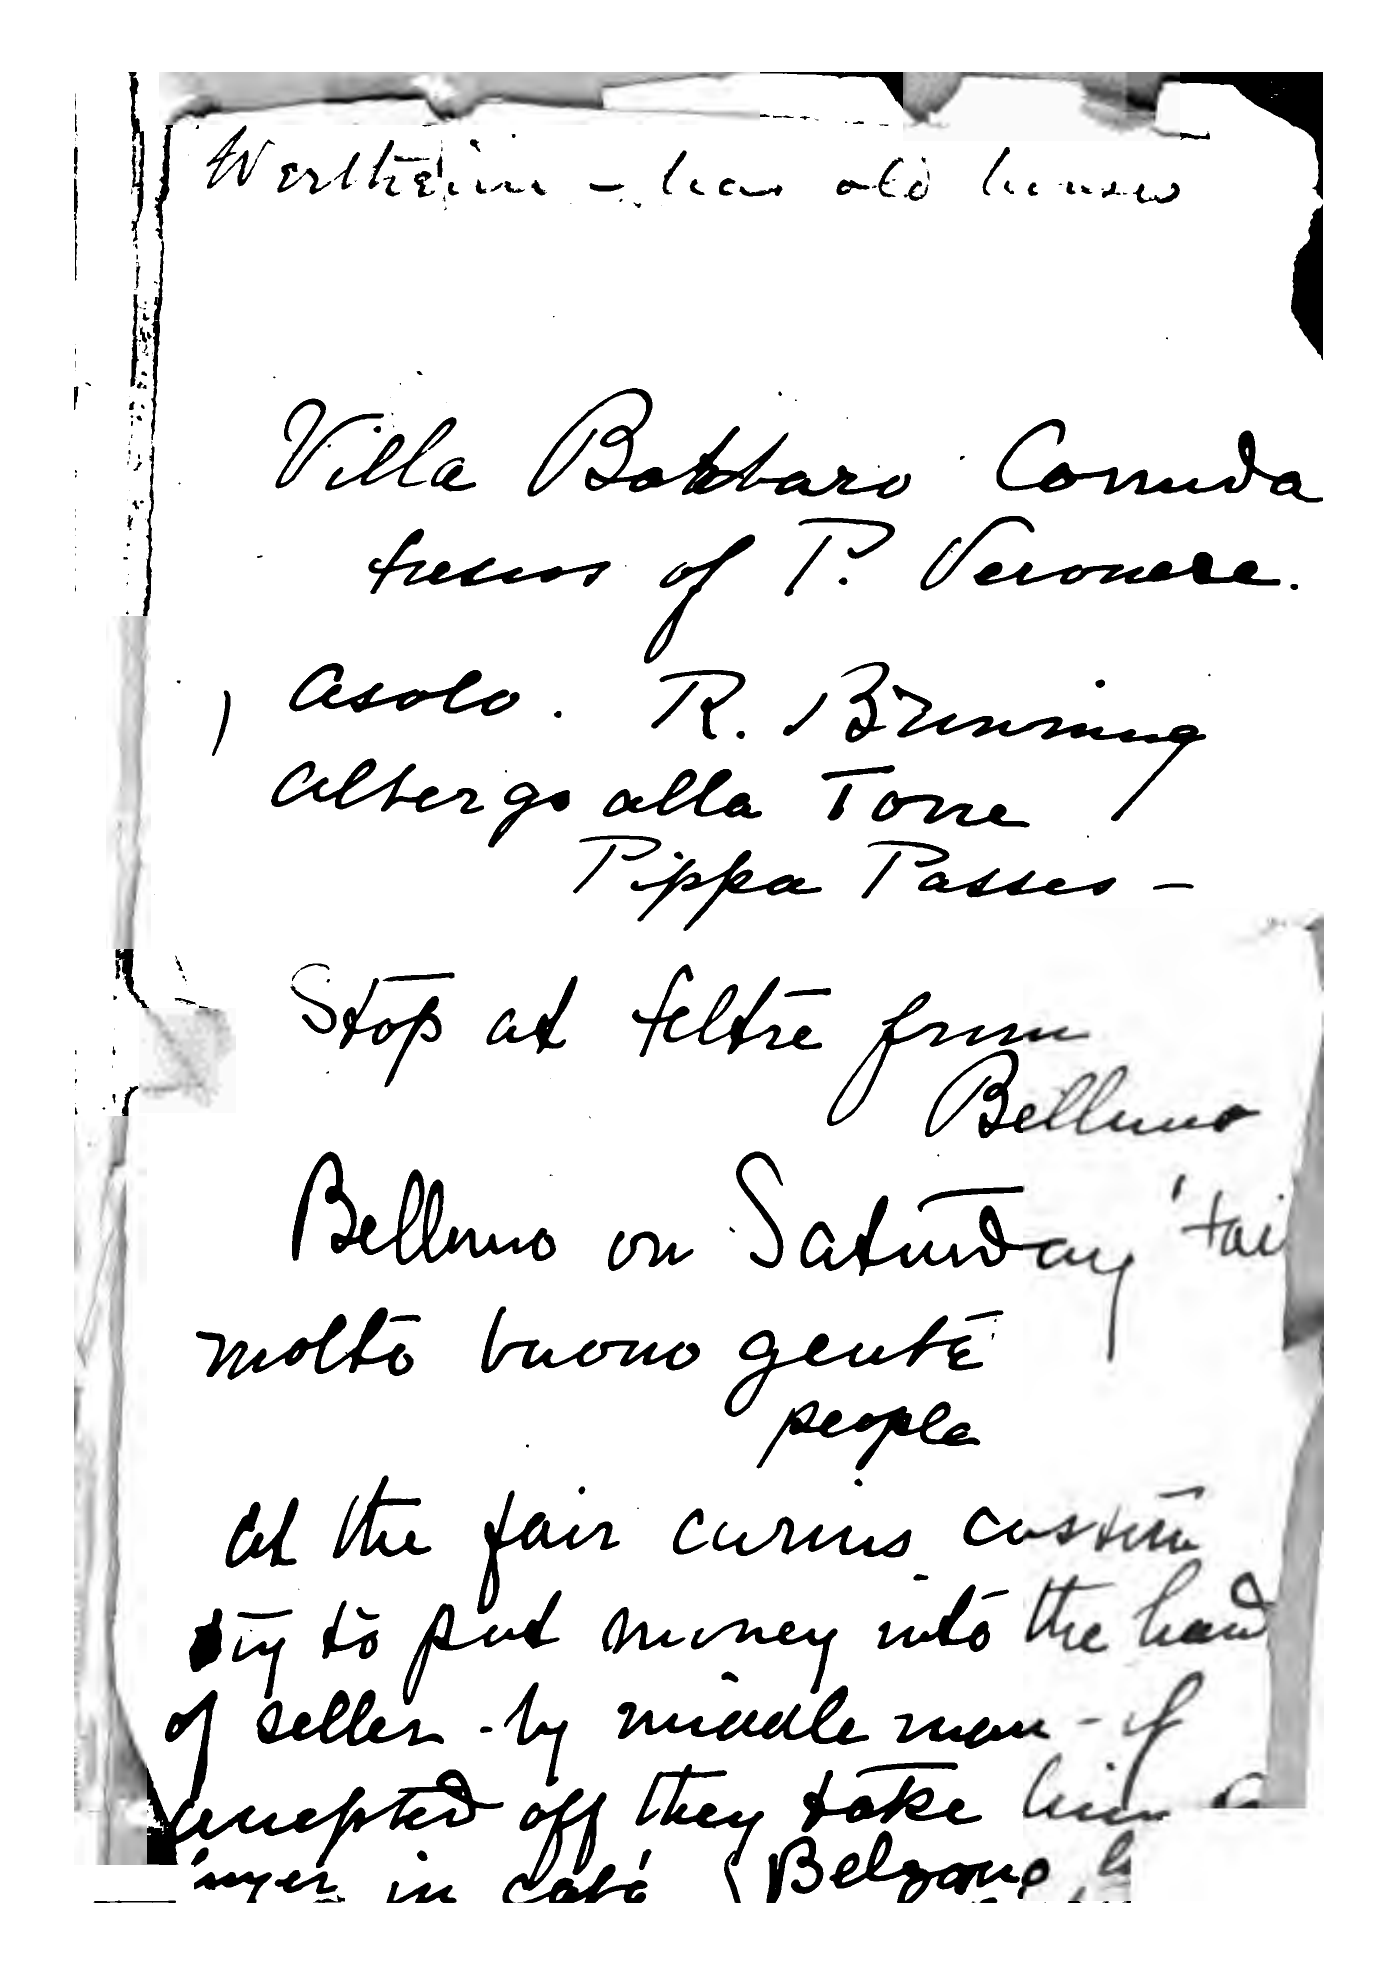 Wertheim - has old houses
Villa Barbaro Cornuda
frescos of P. Veronese.
Asolo. R. Browning
Albergo alla Torre
Pippa Passes -
Stop at Feltre from
Belluno
Belluno on Saturday fair
molto buono gente
people
At the fair curious custom
try to put money into the hand
of seller - by middle man - if
accepted off they take him
in café (Bolzano